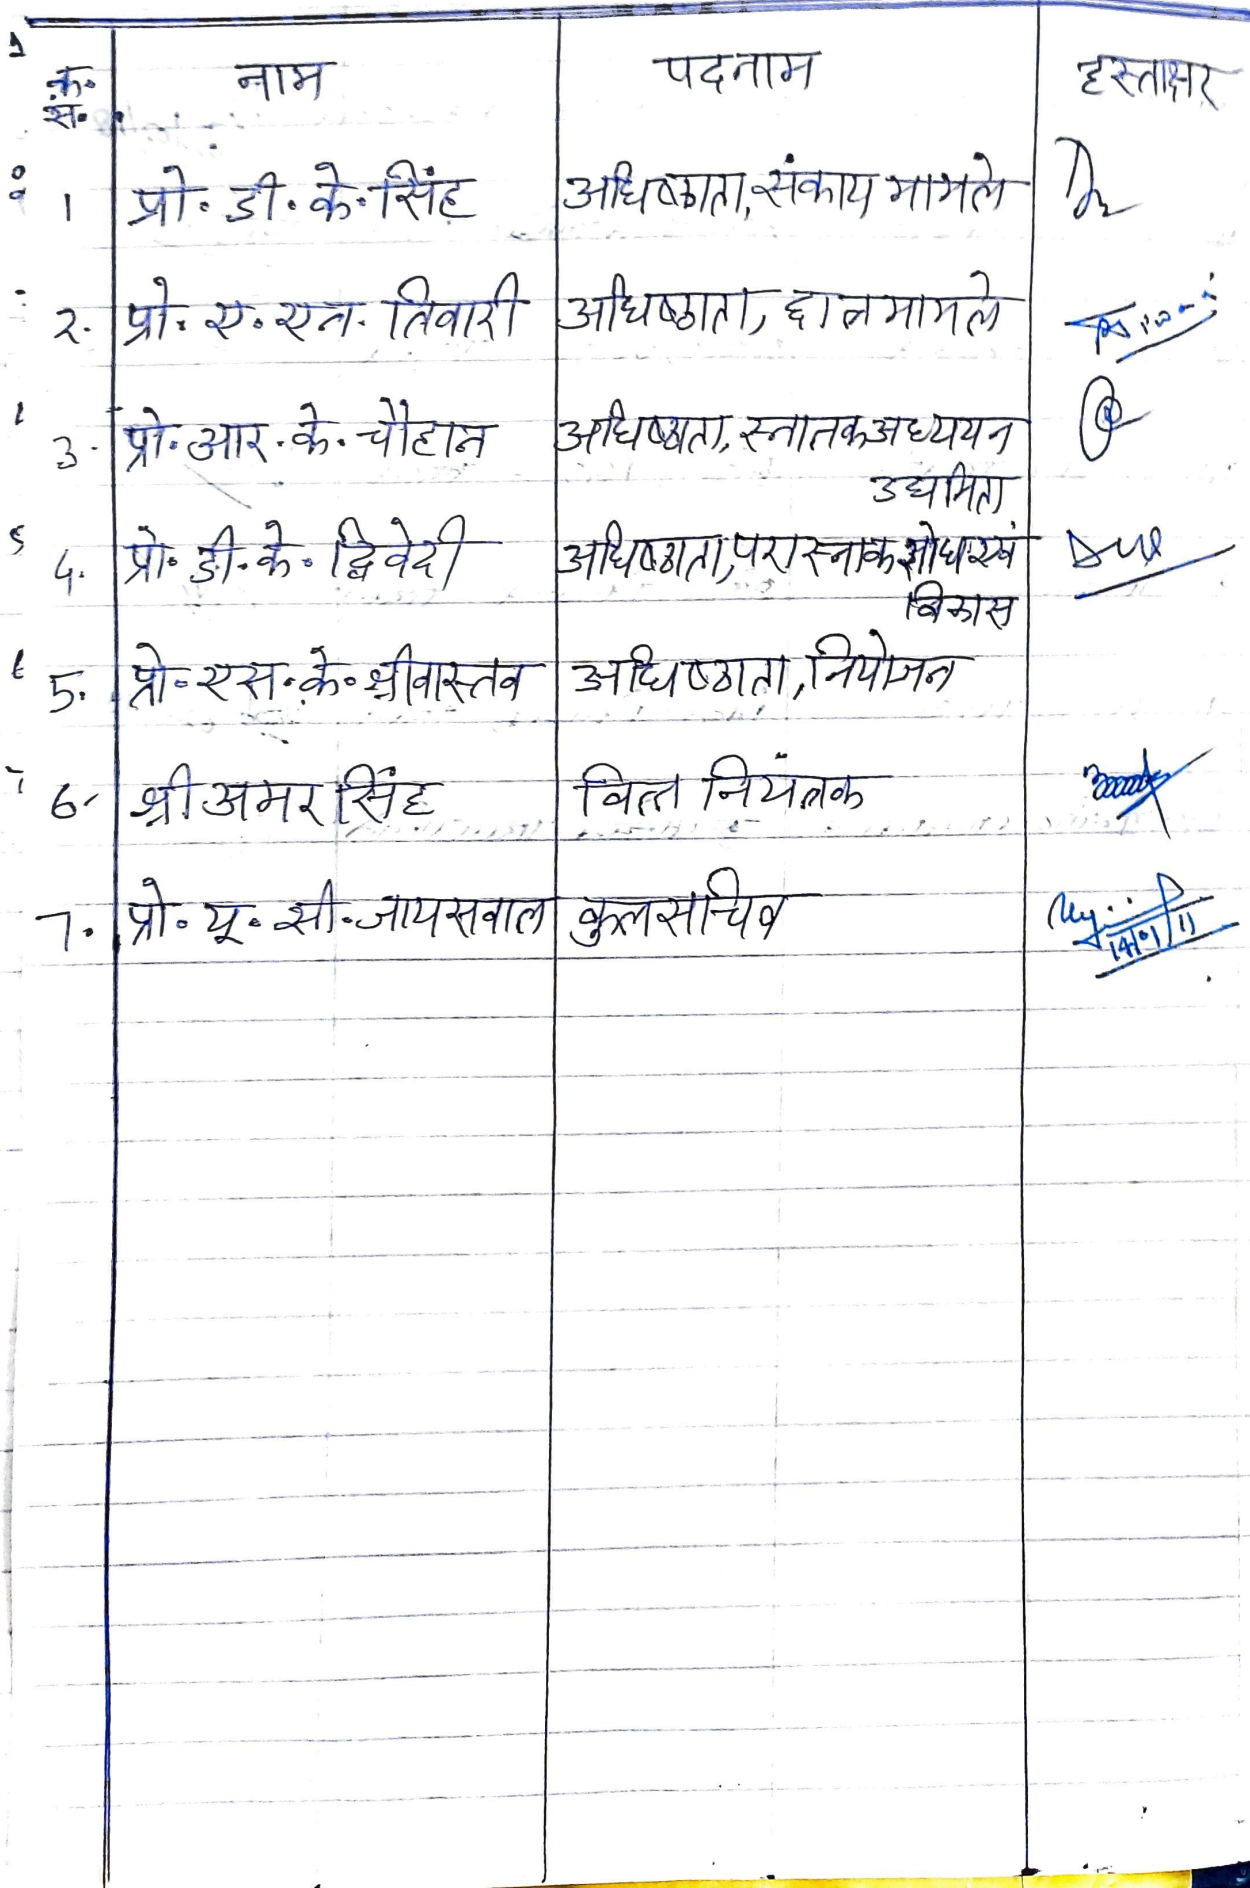 क्र. नाम पदनाम हस्ताक्षर
स.
1 प्रो. डी. के. सिंह अधिष्ठाता, संकाय मामले
2. प्रो. ए. एन. तिवारी अधिष्ठाता, छात्र मामले
3. प्रो. आर. के. चौहान अधिष्ठाता, स्नातक अध्ययन
उद्यमिता
4. प्रो. डी. के. द्विवेदी अधिष्ठाता, परास्नाक शोध एवं
विकास
5. प्रो. एस. के. श्रीवास्तव अधिष्ठाता, नियोजन
6. श्री अमर सिंह वित्त नियंत्रक
7. प्रो. यू. सी. जायसवाल कुलसचिव
14/01/11